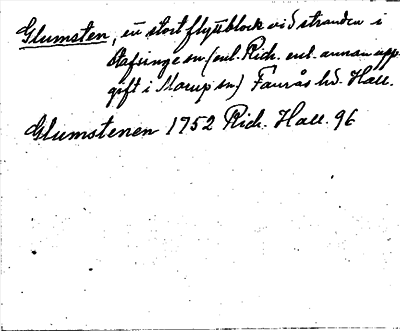 Glumsten, en stort flyttblock vid stranden i
Stafsinge sn (enl. Rich. enl. annan upp-
gift i Morup sn) Faurås hd. Hall.
Glumstenen 1752 Rich. Hall. 96